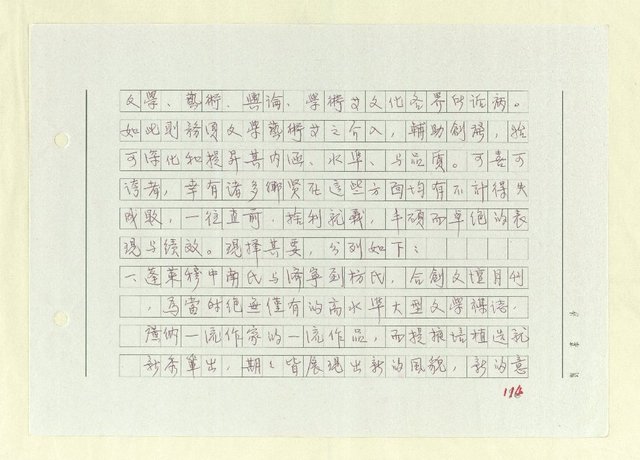 文學、藝術、輿論、學術及文化各界所詬病。
如此則務須文學藝術及之介入,輔助創設,始
可深化和提昇其內涵、水準、与品質。可喜可
誇者,幸有諸多鄉贤在這些方面均有不計得失
成敗,一往直前,捨利就義,丰碩而卓絕的表
現与績效。現擇其要,分列如下:
一、蓬萊穆中南氏与濟寧劉枋氏,合創文壇月刊
,為當時絕無僅有的高水準大型文學雜誌,
積納一流作家的一流作品,而提掖培植造就
新秀輩出,期々皆展現出新的風貌,新的意